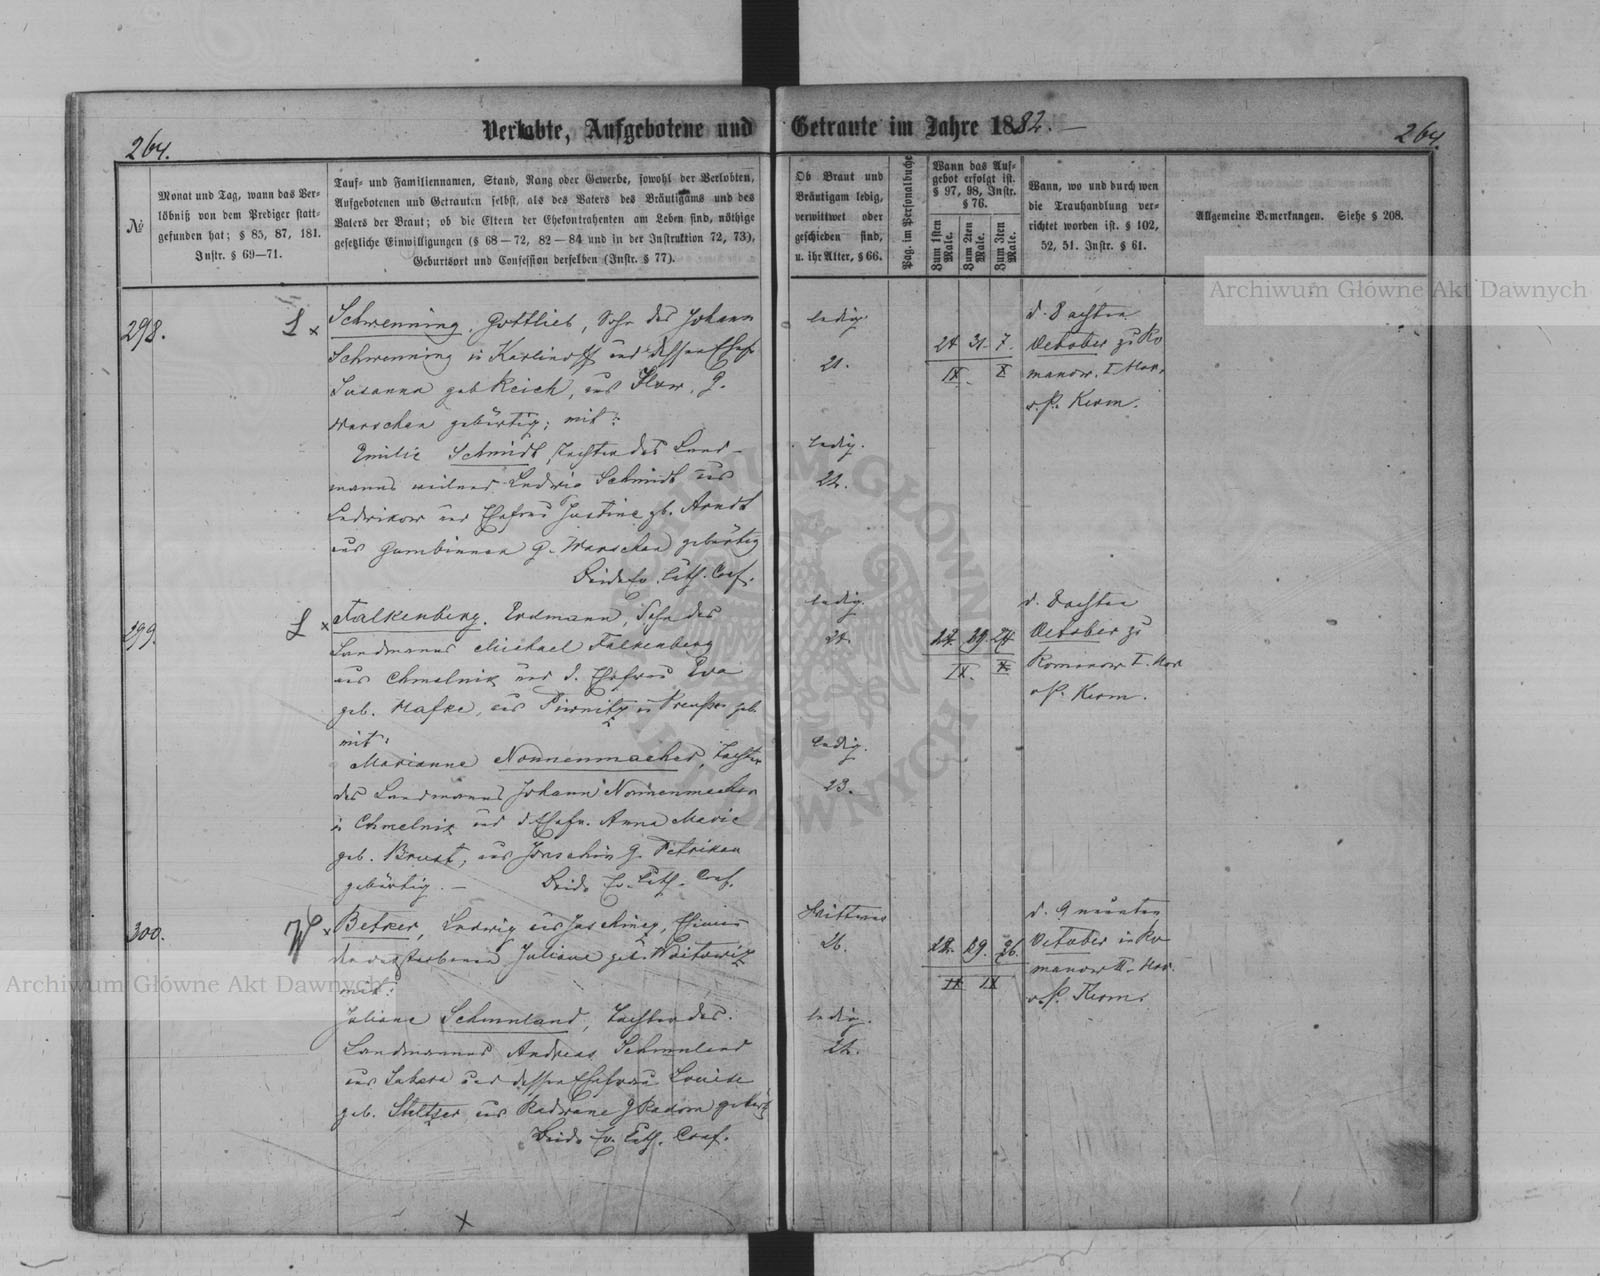 Verlobte, Aufgebotene und Getraute im Jahre 1882.
264.
264.
№
Monat und Tag, wann das Ver-
löbniß von dem Prediger statt-
gefunden hat; § 85, 87, 181.
Instr. § 69—71.
Tauf- und Familiennamen, Stand, Rang oder Gewerbe, sowohl der Verlobten,
Aufgebotenen und Getrauten selbst, als des Vaters des Bräutigams und des
Vaters der Braut; ob die Eltern der Ehekontrahenten am Leben sind, nöthige
gesetzliche Einwilligungen (§ 68—72, 82—84 und in der Instruktion 72, 73),
Geburtsort und Confession derselben (Instr. § 77).
Ob Braut und
Bräutigam ledig,
verwittwet oder
geschieden sind,
u. ihr Alter, § 66.
Pag. im Personalbuche
Wann das Auf-
gebot erfolgt ist.
§ 97, 98, Instr.
§ 76.
Zum 1sten Male.
Zum 2ten Male.
Zum 3ten Male.
Wann, wo und durch wen
die Trauhandlung ver-
richtet worden ist. § 102,
52, 51. Instr. § 61.
Allgemeine Bemerkungen. Siehe § 208.
298.
L x
Schwenning, Gottlieb, Sohn des Johann
Schwenning in Karlinoff und dessen Ehefr.
Susanna geb Reich, aus G.
Warschau gebürtig; mit:
Emilie Schmidt, Tochter des Land-
manns weiland Ludwig Schmidt aus
Ludwikow und Ehefrau Justine gb. Arndt
aus Gumbinnen G. Warschau gebürtig
Beide Ev. Luth. Conf.
ledig.
21.
ledig.
22.
24 31. 7.
IX. X
d. 8 achten
October zu Ro
manow. I Mor.
v. P. Kerm.
299.
L x
Falkenberg, Erdmann, Sohn des
Landmanns Michael Falkenberg
aus Chmelnik und d. Ehefrau Eva
geb. Mafke, aus in Preußen geb.
mit:
Marianne Nonnenmacher, Tochter
des Landmanns Johann Nonnenmacher
in Chmelnik und d Ehefr. Anna Marie
geb. Brust, aus G. Petrikau
gebürtig. — Beide Ev. Luth. Conf.
ledig.
24.
ledig.
23.
IX. X
d. 8 achten
October zu
Romanow I. Mor
v. P. Kerm.
300.
W x
Betker, Ludwig aus
der verstorbenen Juliane geb. Woitowiz
mit:
Juliane Schmuland, Tochter des
Landmannes Andreas Schmuland
aus und dessen Ehefrau Louise
geb. Steltzer aus Radwane G Radom gebürt
Beide Ev. Luth. Conf.
Wittwer
26.
ledig.
22.
IX IX
d. 9 neunten
October in Ro
manow II. Mor.
v. P. Kerm.
x
Archiwum Główne Akt Dawnych
Archiwum Główne Akt Dawnych
ARCHIWUM GŁÓWNE AKT DAWNYCH